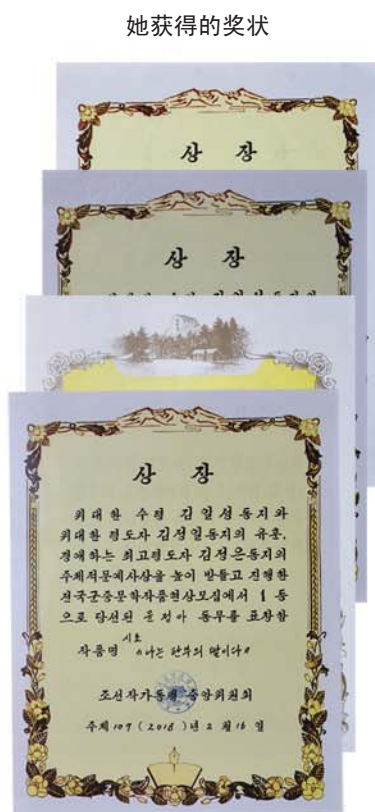 她获得的奖状
상 장
상 장
상 장
위대한 수령 김일성동지와
위대한 령도자 김정일동지의 유훈,
경애하는 최고령도자 김정은동지의
주체적문예사상을 높이 받들고 진행한
전국군중문학작품현상모집에서 1 등
으로 당선된 윤정아 동무를 표창함
시초
작품명 《나는 탄부의 딸이다》
조선작가동맹 중앙위원회
주체 107 ( 2018 ) 년 2 월 16 일